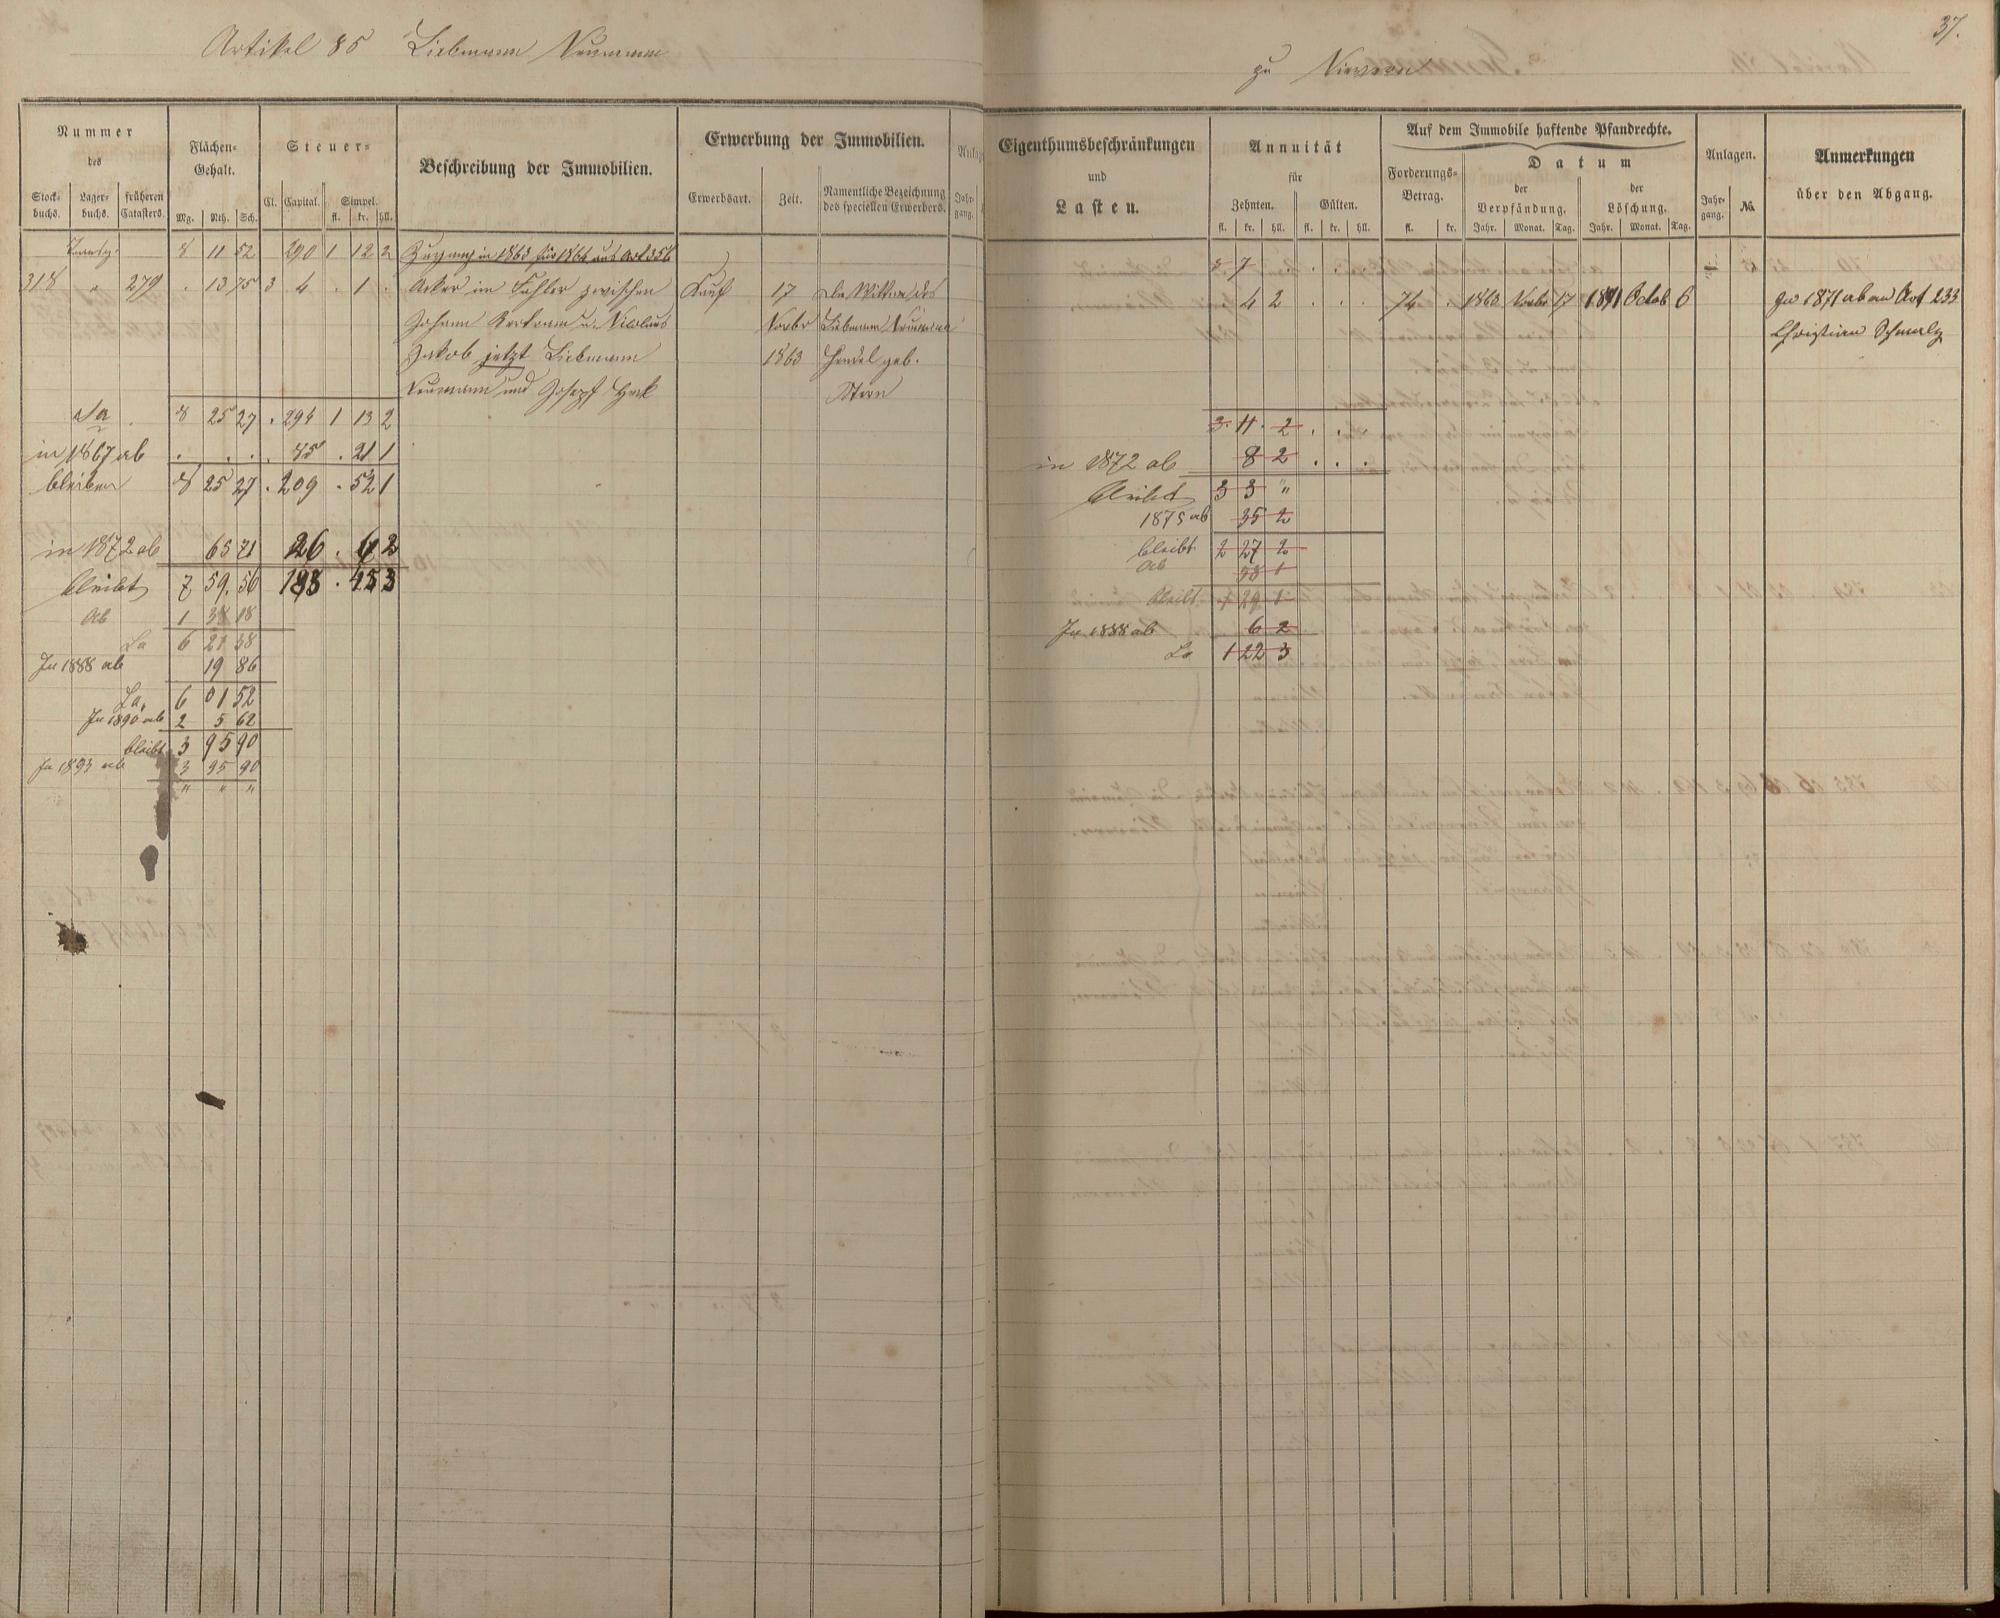 Artikel 85 Liebmann Neumann
zu Nievern
37.
Nummer
des
Stock-
buchs.
Lager-
buchs.
früheren
Catasters.
Flächen-
Gehalt.
Mg. Rth. Sch.
Steuer-
Cl. Capital. Simpel.
fl. kr. hll.
Beschreibung der Immobilien.
Erwerbung der Immobilien.
Erwerbsart. Zeit. Namentliche Bezeichnung
des speciellen Erwerbers.
Jahr-
gang.
Eigenthumsbeschränkungen
und
Lasten.
Annuität
für
Zehnten. Gülten.
fl. kr. hll. fl. kr. hll.
Auf dem Immobile haftende Pfandrechte.
Forderungs-
Betrag.
fl. kr.
Datum
der
Verpfändung.
Jahr. Monat. Tag.
der
Löschung.
Jahr. Monat. Tag.
Anlagen.
Jahr-
gang. No.
Anmerkungen
über den Abgang.
Transp. 8 11 52 290 1 12 2 Zugang in 1863 für 1864 aus Art 356 3 7
318 " 279 . 13 75 3 4 . 1 . Acker im Fahler zwischen Kauf 17 die Wittwe des 4 2 . . . 74 . 1863 Novbr 17 1871 Octob 6 zu 1871 ab an Art 233
Johann u. Nicolaus Novbr Liebmann Neumann Christian Schmelz
Jakob jetzt Liebmann 1863 Hendel geb.
Neumann und Josepf Herk Stern
Sa 8 25 27 . 294 1 13 2 3 11 2 . . .
in 1867 ab . . . . 75 . 21 1 in 1872 ab 8 2 . . .
bleiben 8 25 27 . 209 . 52 1 bleibt 3 3 "
1875 ab 35 2
in 1872 ab 65 71 26 . 6 2 bleibt 2 27 2
bleibt 7 59. 56 183 . 45 3 ab 58 1
ab 1 38 18 bleibt 1 29 1
La 6 21 38 In 1888 ab 6 2
In 1888 ab 19 86 La 1 22 3
La. 6 01 52
In 1890 ab 2 5 62
bleibt 3 95 90
In 1893 ab 3 95 90
" " "